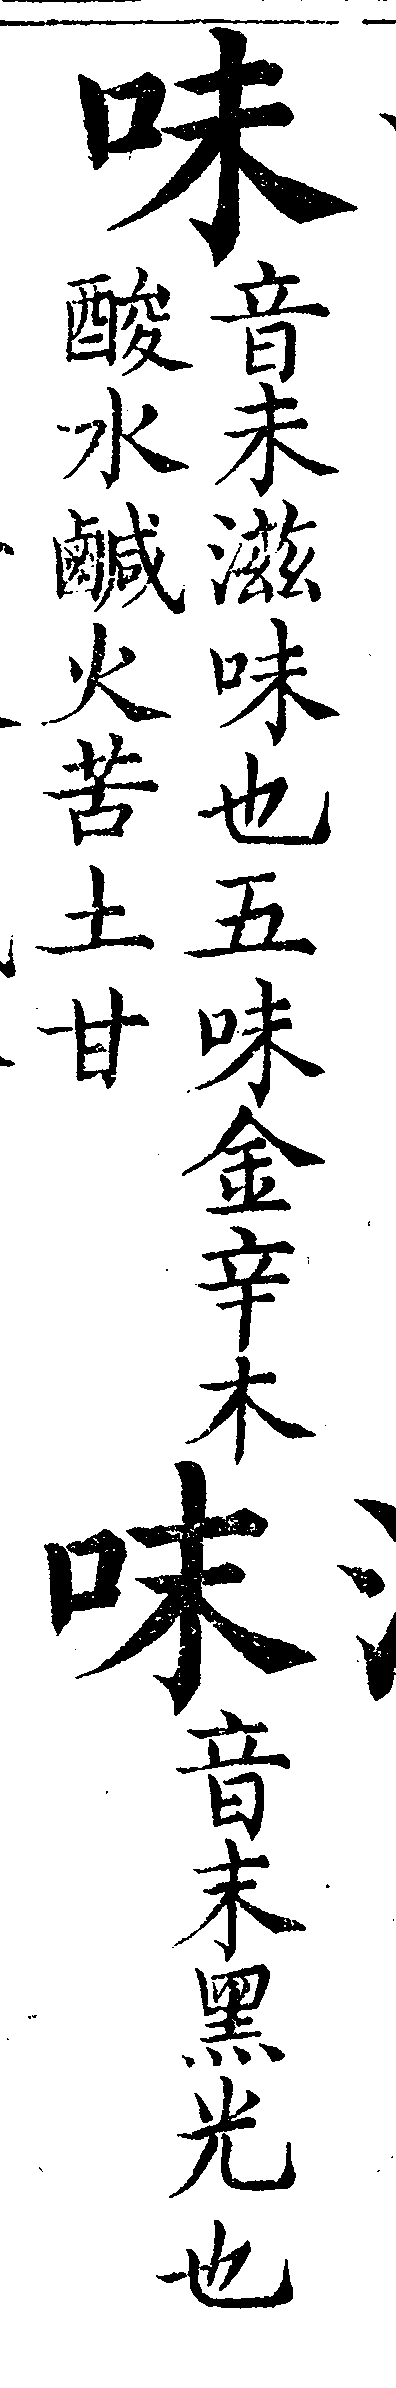 味
音未滋味也五味金辛木
酸水鹹火苦土甘
𠰌
音末黑光也